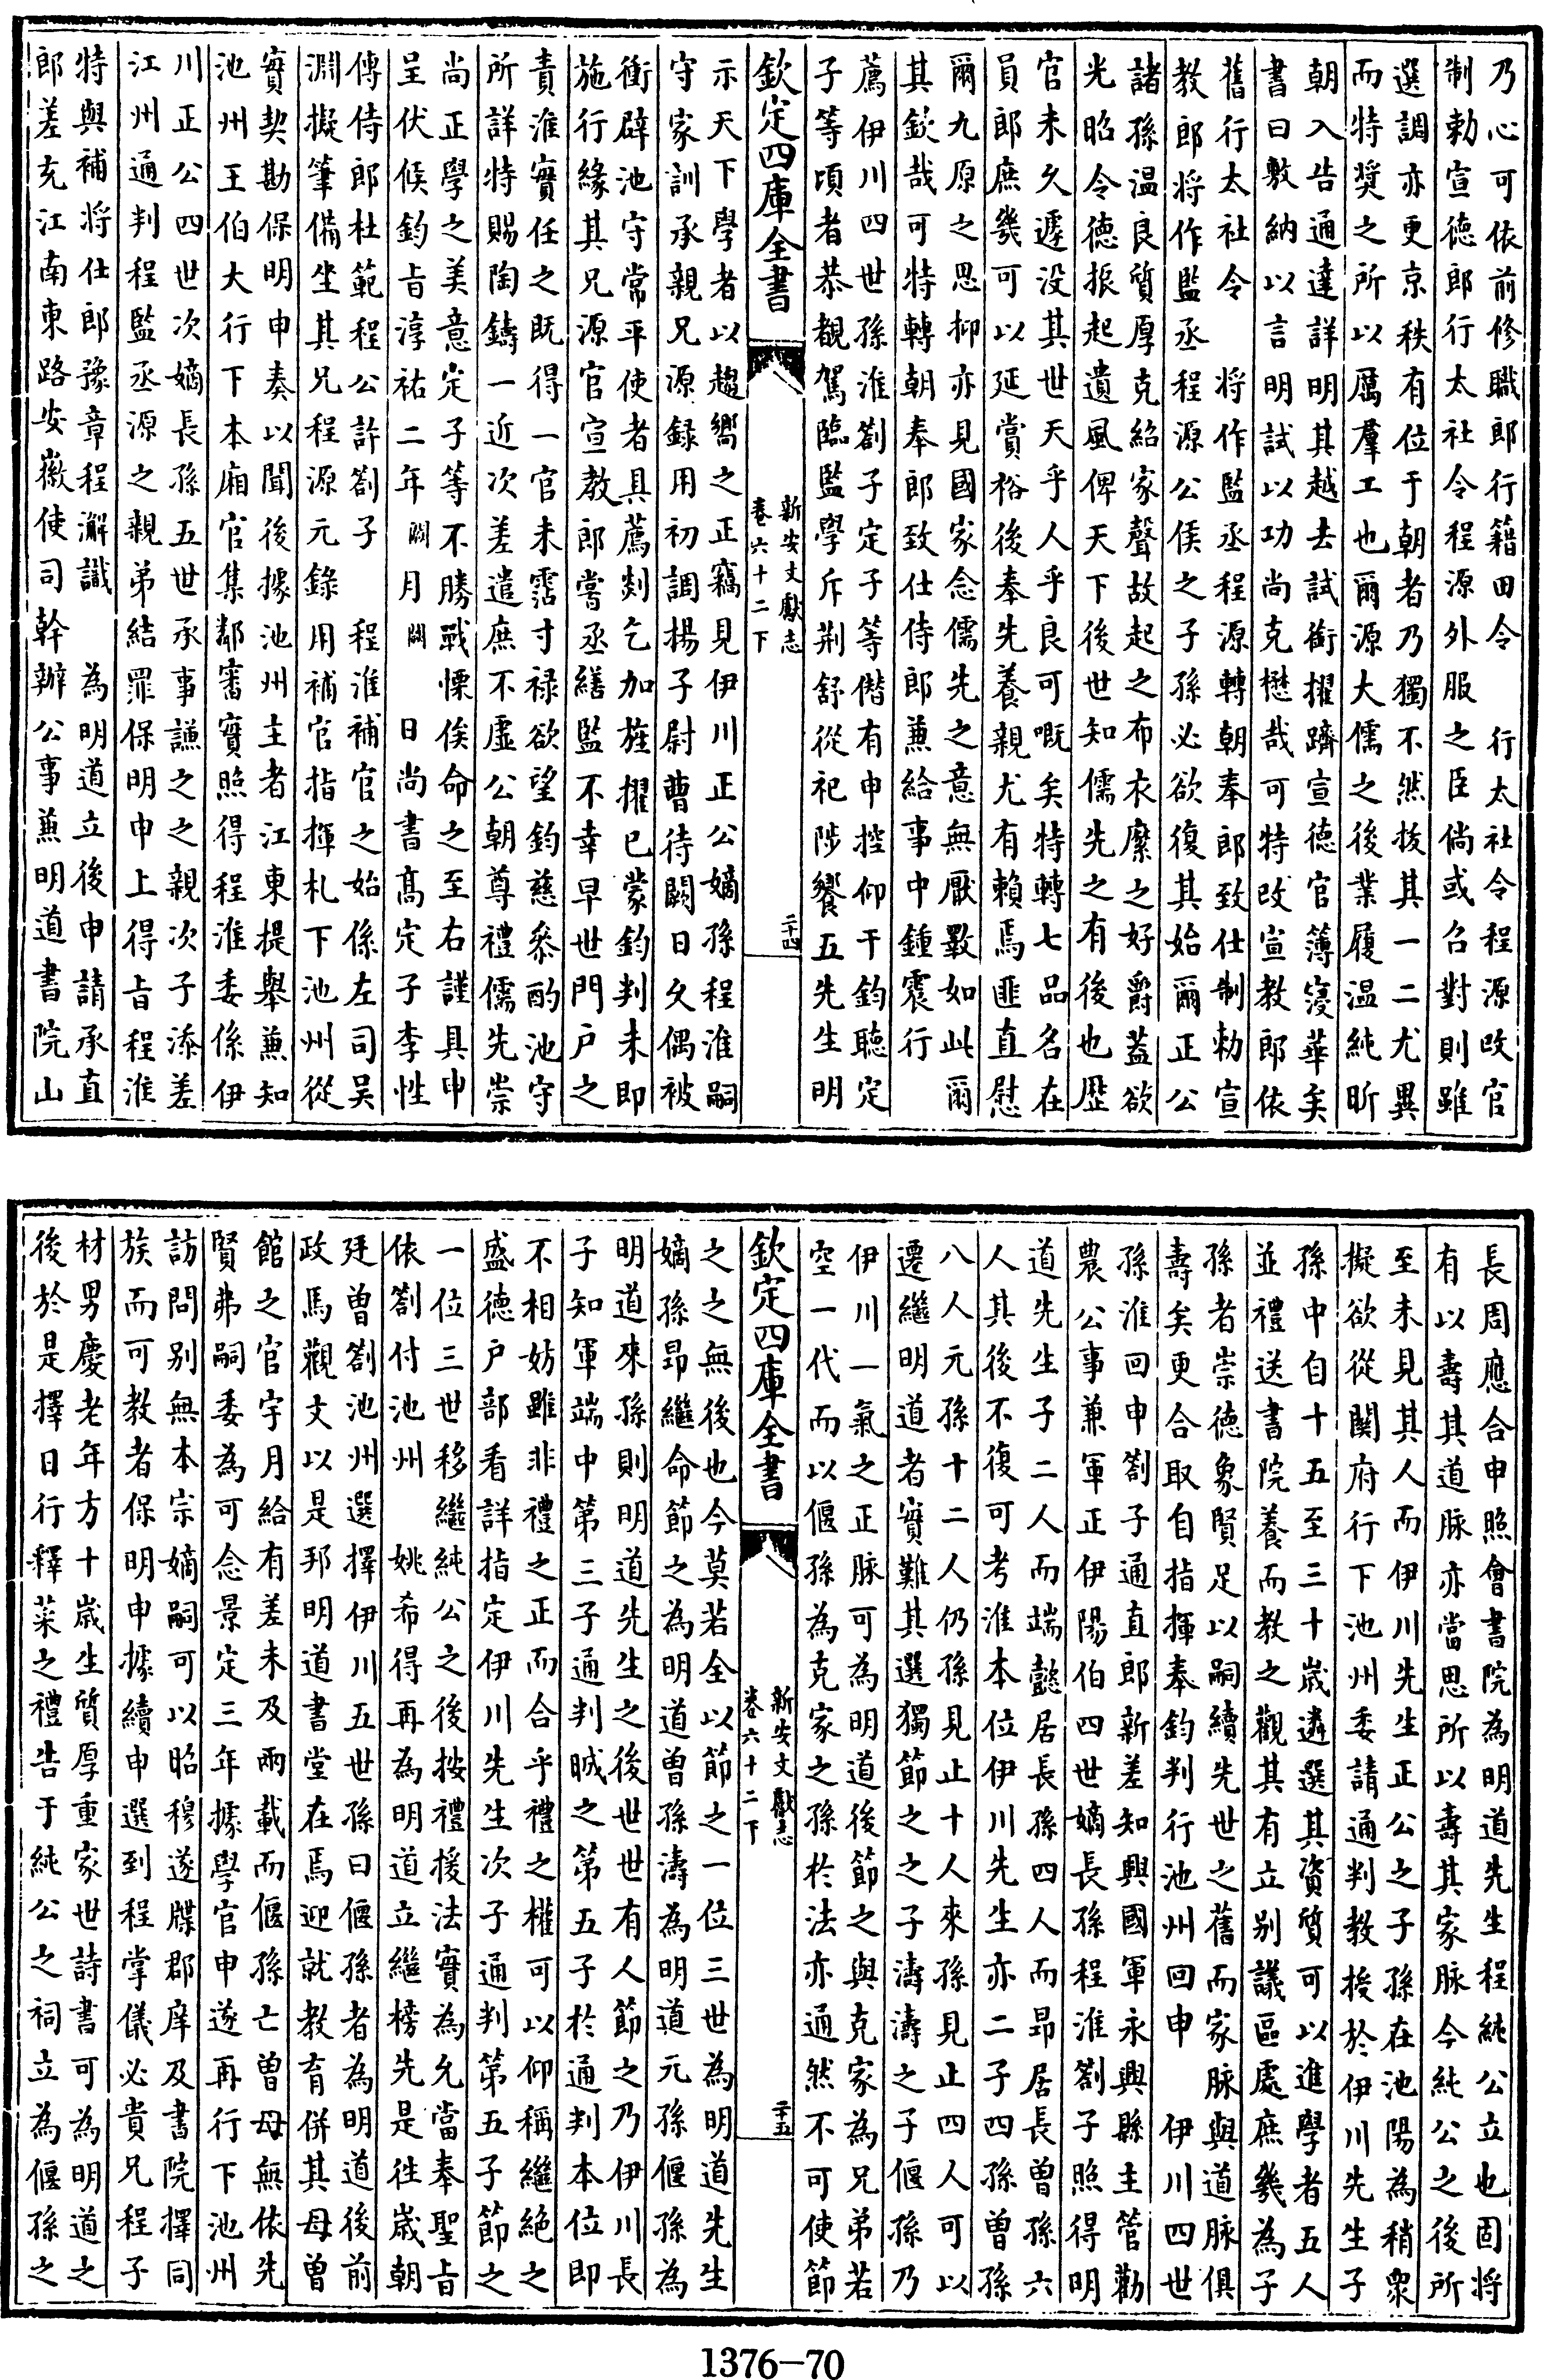 乃心可依前修職郎行籍田令　行太社令程源改官
制勅宣德郎行太社令程源外服之臣倘或召對則雖
選調亦更京秩有位于朝者乃獨不然拔其一二尤異
而特奬之所以厲羣工也爾源大儒之後業履温純昕
朝入告通達詳明其越去試銜擢躋宣德官簿寖華矣
書曰敷納以言明試以功尚克懋哉可特改宣教郎依
舊行太社令　將作監丞程源轉朝奉郎致仕制勅宣
教郎將作監丞程源公侯之子孫必欲復其始爾正公
諸孫温良質厚克紹家聲故起之布衣縻之好爵蓋欲
光昭令德振起遺風俾天下後世知儒先之有後也歴
官未久遽没其世天乎人乎良可嘅矣特轉七品名在
員郎庶幾可以延賞裕後奉先養親尤有賴焉匪直慰
爾九原之思抑亦見國家念儒先之意無厭斁如此爾
其欽哉可特轉朝奉郎致仕侍郎兼給事中鍾震行
薦伊川四世孫淮劄子定子等僭有申控仰干鈞聽定
子等頃者恭覩駕臨監學斥荆舒從祀陟饗五先生明
欽定四庫全書
新安文獻志
卷六十二下
二十四
示天下學者以趨嚮之正竊見伊川正公嫡孫程淮嗣
守家訓承親兄源録用初調揚子尉曹待闕日久偶被
衝辟池守常平使者具薦剡乞加旌擢已蒙鈞判未即
施行緣其兄源官宣教郎嘗丞繕監不幸早世門户之
責淮實任之既得一官未霑寸禄欲望鈞慈叅酌池守
所詳特賜陶鑄一近次差遣庶不虚公朝尊禮儒先崇
尚正學之美意定子等不勝戰慄俟命之至右謹具申
呈伏候鈞旨淳祐二年闕月闕　日尚書高定子李性
傳侍郎杜範程公許劄子　程淮補官之始係左司吴
淵擬筆備坐其兄程源元錄用補官指揮札下池州從
實契勘保明申奏以聞後據池州主者江東提舉兼知
池州王伯大行下本廂官集鄰審實照得程淮委係伊
川正公四世次嫡長孫五世承事謙之之親次子添差
江州通判程監丞源之親弟結罪保明申上得旨程淮
特與補將仕郎豫章程澥識　為明道立後申請承直
郎差充江南東路安撫使司幹辦公事兼明道書院山
長周應合申照會書院為明道先生程純公立也固將
有以壽其道脉亦當思所以壽其家脉今純公之後所
至未見其人而伊川先生正公之子孫在池陽為稍衆
擬欲從闕府行下池州委請通判教授於伊川先生子
孫中自十五至三十歳遴選其資質可以進學者五人
並禮送書院養而教之觀其有立别議區處庶幾為子
孫者崇德象賢足以嗣續先世之舊而家脉與道脉俱
壽矣更合取自指揮奉鈞判行池州回申　伊川四世
孫淮回申劄子通直郎新差知興國軍永興縣主管勸
農公事兼軍正伊陽伯四世嫡長孫程淮劄子照得明
道先生子二人而端懿居長孫四人而昂居長曾孫六
人其後不復可考淮本位伊川先生亦二子四孫曾孫
八人元孫十二人仍孫見止十人來孫見止四人可以
遷繼明道者實難其選獨節之之子濤濤之子偃孫乃
伊川一氣之正脉可為明道後節之與克家為兄弟若
空一代而以偃孫為克家之孫於法亦通然不可使節
欽定四庫全書
新安文獻志
卷六十二下
二十五
之之無後也今莫若全以節之一位三世為明道先生
嫡孫昂繼命節之為明道曾孫濤為明道元孫偃孫為
明道來孫則明道先生之後世世有人節之乃伊川長
子知軍端中第三子通判晠之第五子於通判本位即
不相妨雖非禮之正而合乎禮之權可以仰稱繼絶之
盛德户部看詳指定伊川先生次子通判第五子節之
一位三世移繼純公之後按禮援法實為允當奉聖旨
依劄付池州　姚希得再為明道立繼榜先是徃歳朝
廷曾劄池州選擇伊川五世孫曰偃孫者為明道後前
政馬觀文以是邦明道書堂在焉迎就教育併其母曽
館之官宇月給有差未及兩載而偃孫亡曽母無依先
賢弗嗣委為可念景定三年據學官申遂再行下池州
訪問别無本宗嫡嗣可以昭穆遂牒郡庠及書院擇同
族而可教者保明申據續申選到程掌儀必貴兄程子
材男慶老年方十歳生質厚重家世詩書可為明道之
後於是擇日行釋菜之禮告于純公之祠立為偃孫之
1376-70